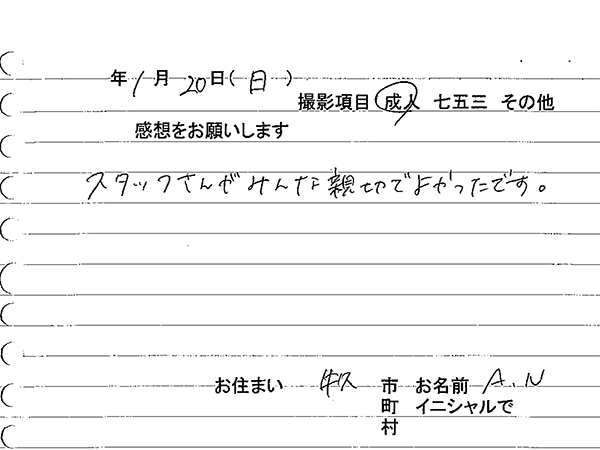 年1月20日(日)
撮影項目 成人 七五三 その他
感想をお願いします
スタッフさんがみんな親切でよかったです。
お住まい 市 お名前 A.N
町 イニシャルで
村